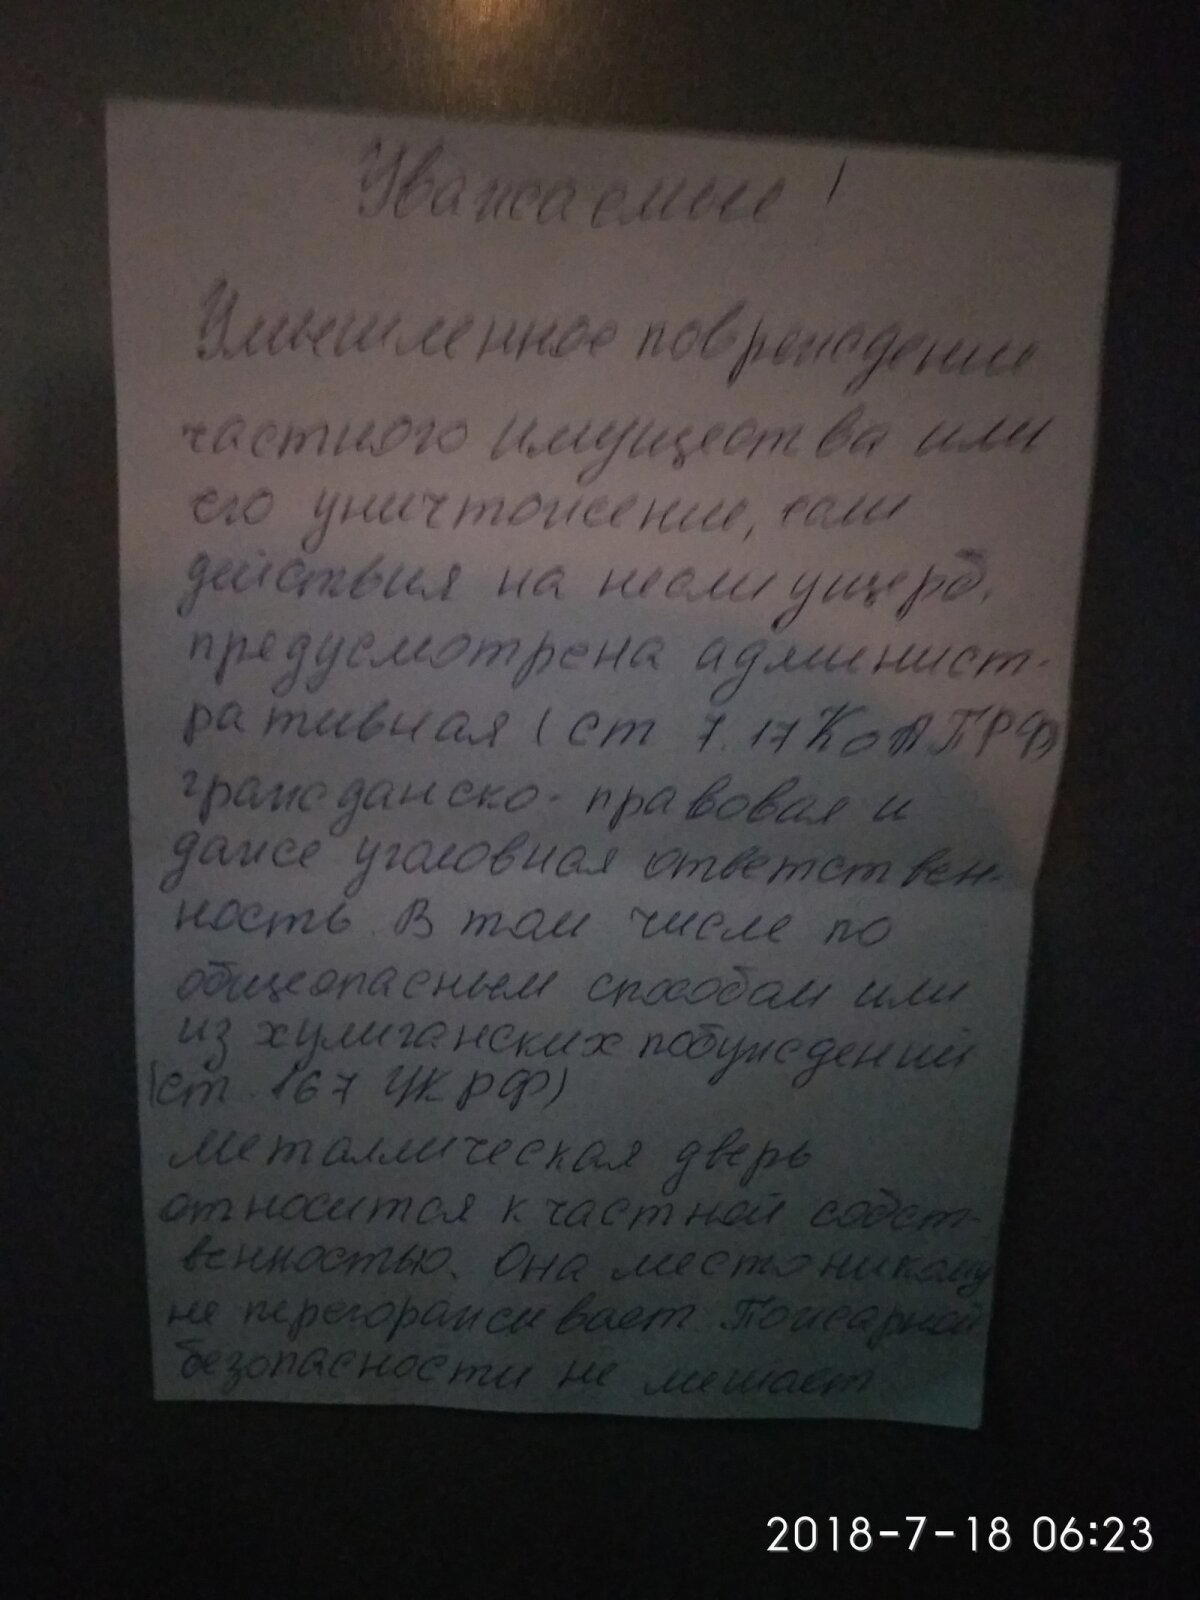 Уважаемые !
Умышленное повреждение
частного имущества или
его уничтожение, если
действия нанесли ущерб.
предусмотрена админист-
ративная (ст 7.17 КоАПРФ)
гражданско-правовая и
даже уголовная ответствен-
ность. В том числе по
общеопасным способом или
из хулиганских побуждений
(ст. 167 УК РФ)
Металлическая дверь
относится к частной собст-
венностью. Она место никому
не перегораживает. Пожарной
безопасности не мешает
2018-7-18 06:23